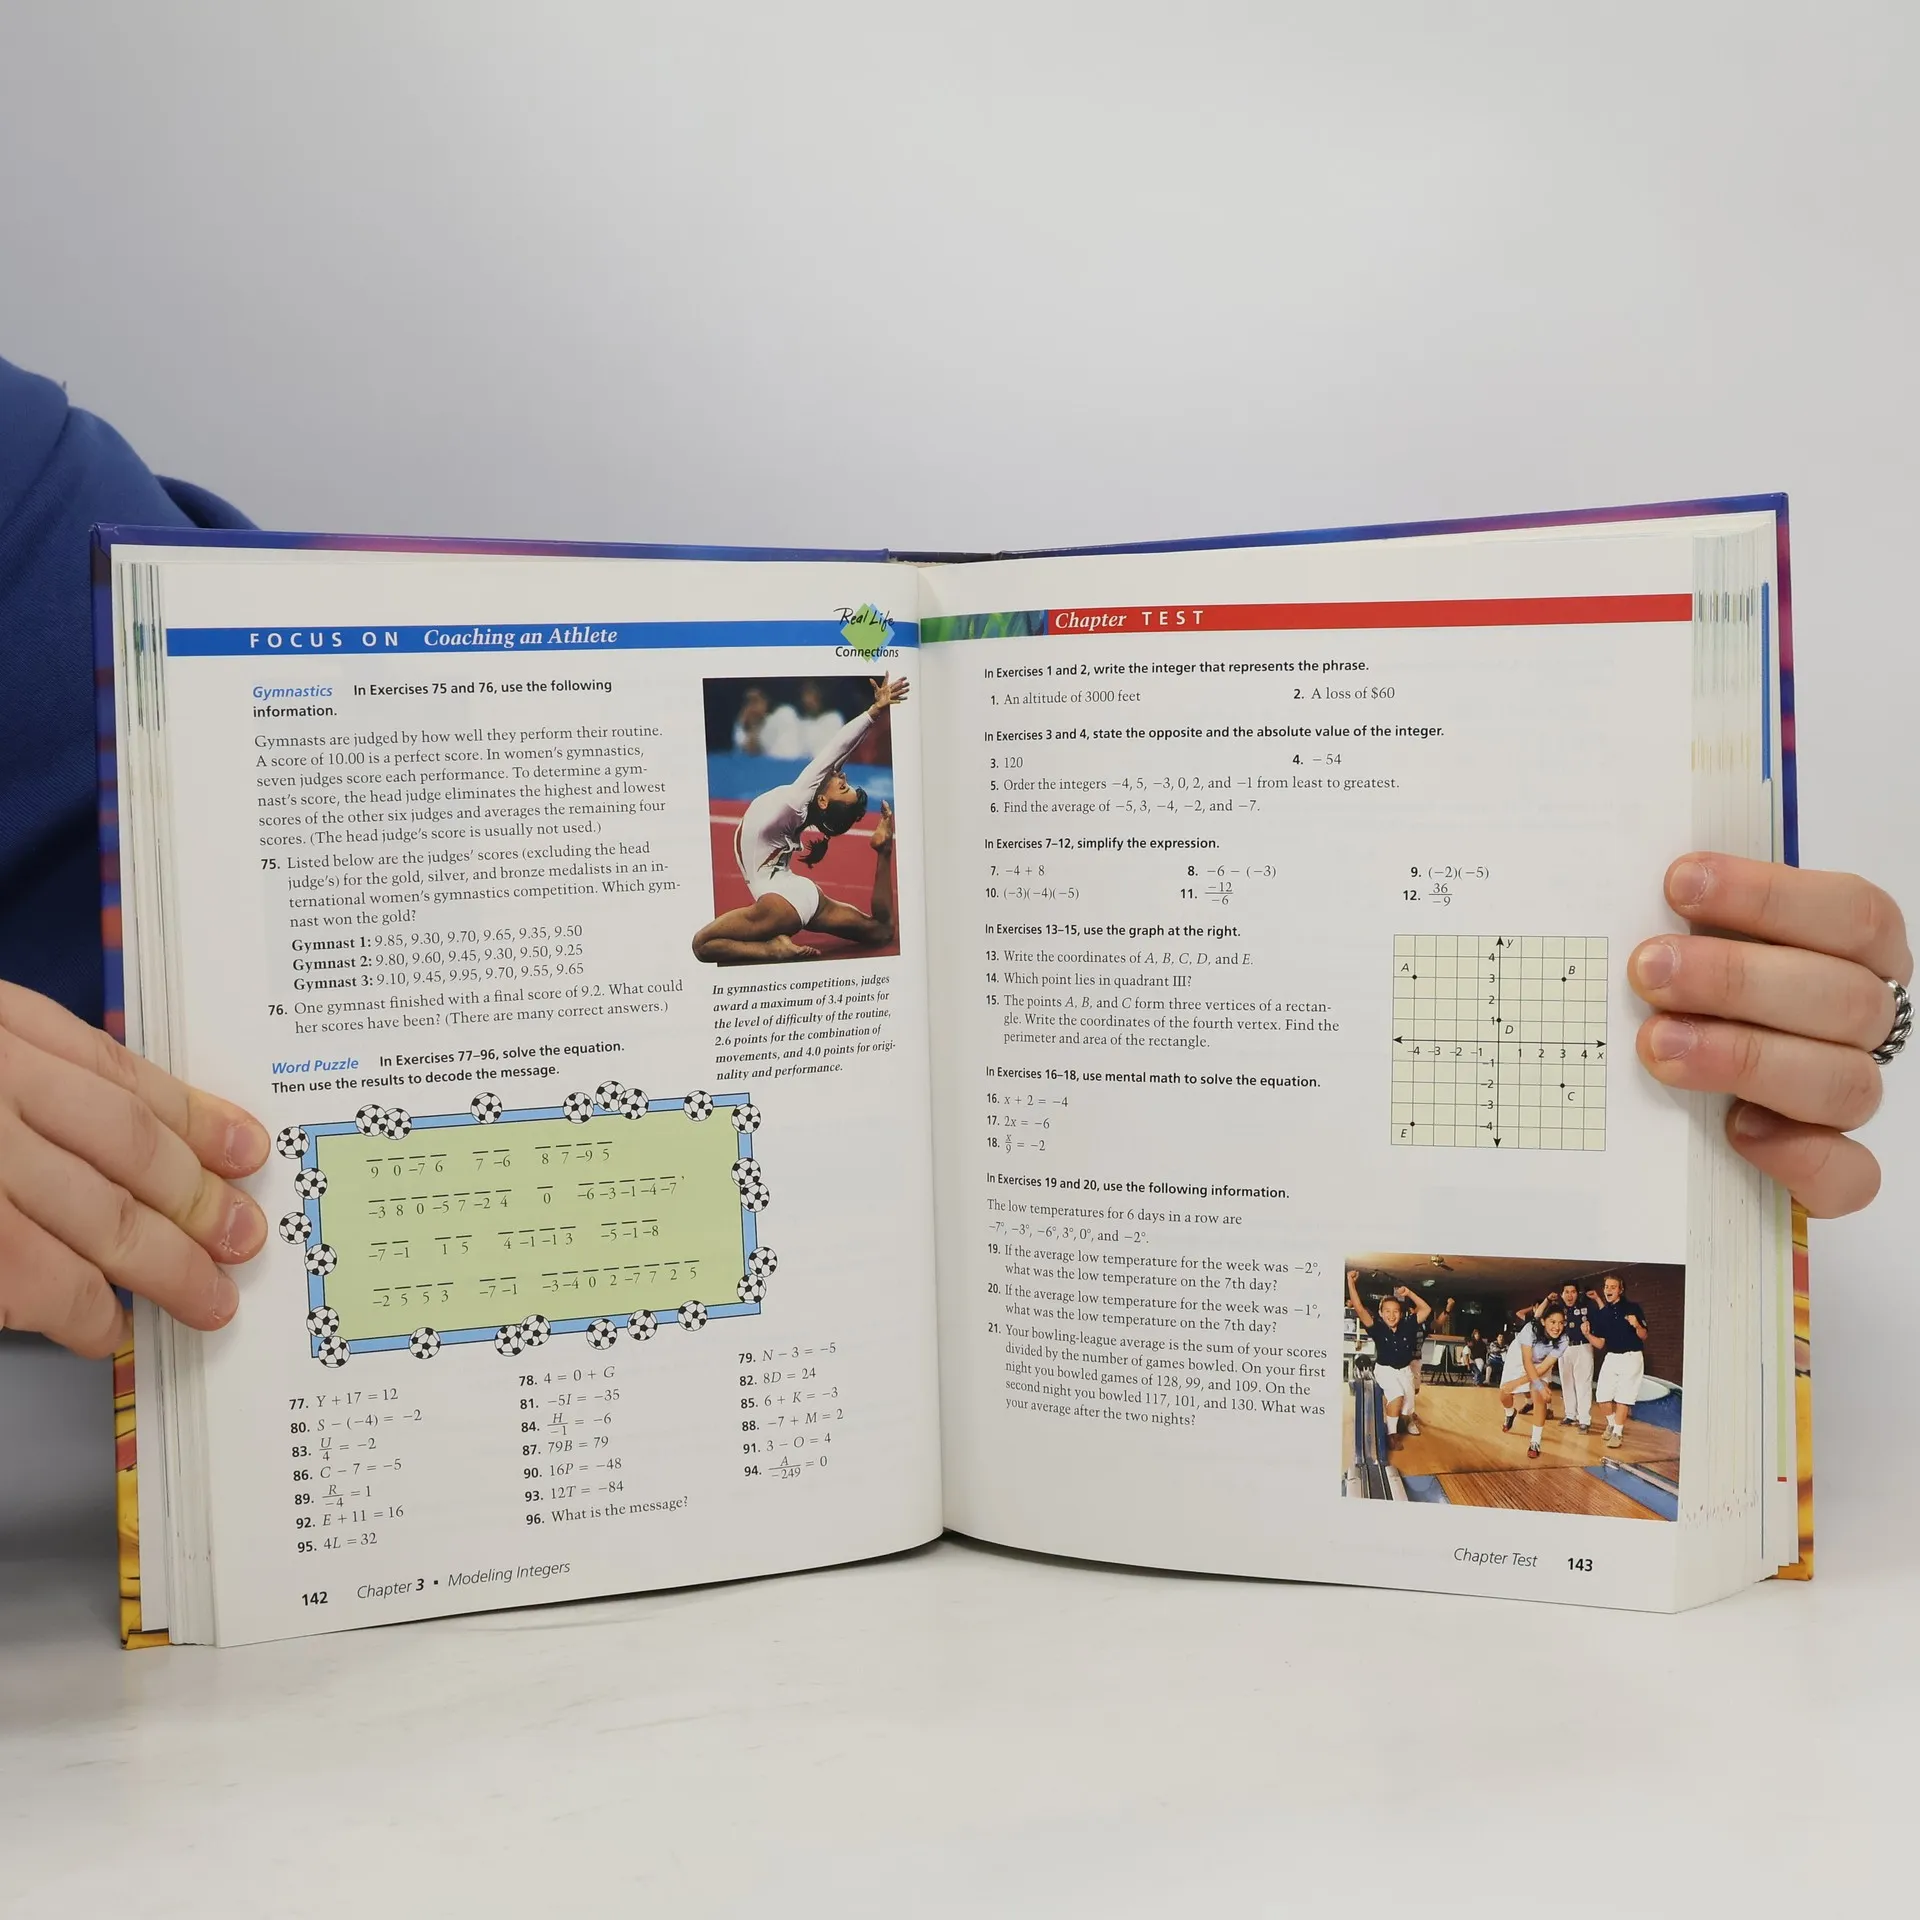 FOCUS ON Coaching an Athlete
Real Life
Connections
Gymnastics In Exercises 75 and 76, use the following
information.
Gymnasts are judged by how well they perform their routine.
A score of 10.00 is a perfect score. In women's gymnastics,
seven judges score each performance. To determine a gym-
nast's score, the head judge eliminates the highest and lowest
scores of the other six judges and averages the remaining four
scores. (The head judge's score is usually not used.)
75. Listed below are the judges' scores (excluding the head
judge's) for the gold, silver, and bronze medalists in an in-
ternational women's gymnastics competition. Which gym-
nast won the gold?
Gymnast 1: 9.85, 9.30, 9.70, 9.65, 9.35, 9.50
Gymnast 2: 9.80, 9.60, 9.45, 9.30, 9.50, 9.25
Gymnast 3: 9.10, 9.45, 9.95, 9.70, 9.55, 9.65
76. One gymnast finished with a final score of 9.2. What could
her scores have been? (There are many correct answers.)
In gymnastics competitions, judges
award a maximum of 3.4 points for
the level of difficulty of the routine,
2.6 points for the combination of
movements, and 4.0 points for origi-
nality and performance.
Word Puzzle In Exercises 77–96, solve the equation.
Then use the results to decode the message.
9 0 −7 6 7 −6 8 7 −9 5
−3 8 0 −5 7 −2 4 0 −6 −3 −1 −4 −7 ,
−7 −1 1 5 4 −1 −1 3 −5 −1 −8
−2 5 5 3 −7 −1 −3 −4 0 2 −7 7 2 5
77. Y + 17 = 12
78. 4 = 0 + G
79. N − 3 = −5
80. S − (−4) = −2
81. −5I = −35
82. 8D = 24
83. U/4 = −2
84. H/−1 = −6
85. 6 + K = −3
86. C − 7 = −5
87. 79B = 79
88. −7 + M = 2
89. R/−4 = 1
90. 16P = −48
91. 3 − O = 4
92. E + 11 = 16
93. 12T = −84
94. A/−249 = 0
95. 4L = 32
96. What is the message?
142 Chapter 3 ▪ Modeling Integers
Chapter TEST
In Exercises 1 and 2, write the integer that represents the phrase.
1. An altitude of 3000 feet
2. A loss of $60
In Exercises 3 and 4, state the opposite and the absolute value of the integer.
3. 120
4. − 54
5. Order the integers −4, 5, −3, 0, 2, and −1 from least to greatest.
6. Find the average of −5, 3, −4, −2, and −7.
In Exercises 7–12, simplify the expression.
7. −4 + 8
8. −6 − (−3)
9. (−2)(−5)
10. (−3)(−4)(−5)
11. −12/−6
12. 36/−9
In Exercises 13–15, use the graph at the right.
13. Write the coordinates of A, B, C, D, and E.
14. Which point lies in quadrant III?
15. The points A, B, and C form three vertices of a rectan-
gle. Write the coordinates of the fourth vertex. Find the
perimeter and area of the rectangle.
y
4
A 3 B
2
1
D
−4 −3 −2 −1 1 2 3 4 x
−1
−2
C
−3
−4
E
In Exercises 16–18, use mental math to solve the equation.
16. x + 2 = −4
17. 2x = −6
18. x/9 = −2
In Exercises 19 and 20, use the following information.
The low temperatures for 6 days in a row are
−7°, −3°, −6°, 3°, 0°, and −2°.
19. If the average low temperature for the week was −2°,
what was the low temperature on the 7th day?
20. If the average low temperature for the week was −1°,
what was the low temperature on the 7th day?
21. Your bowling-league average is the sum of your scores
divided by the number of games bowled. On your first
night you bowled games of 128, 99, and 109. On the
second night you bowled 117, 101, and 130. What was
your average after the two nights?
Chapter Test 143